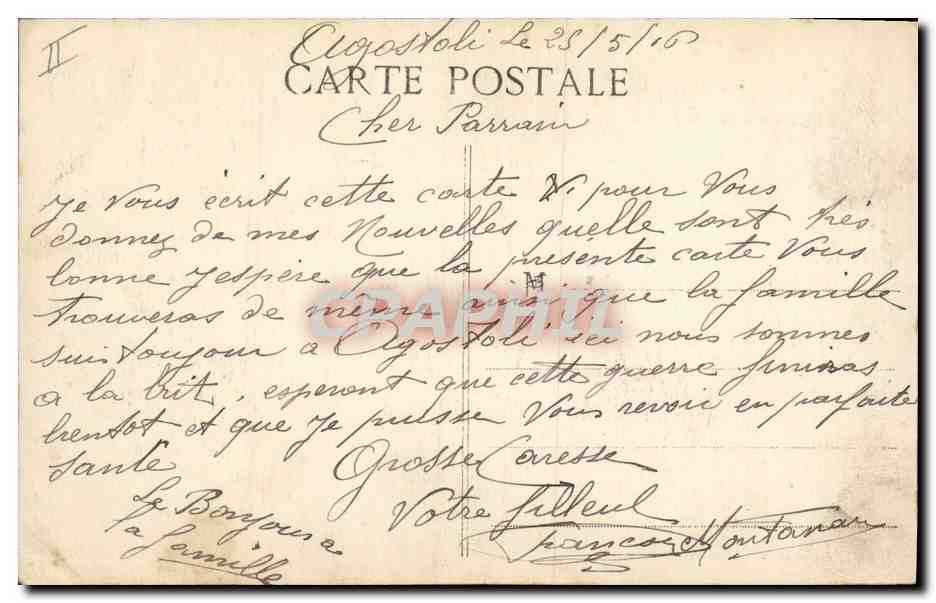 II
Agostoli Le 25/5/16
CARTE POSTALE
Cher Parrain
Je vous écrit cette carte pour Vous
donnez de mes Nouvelles quelle sont très
bonne J'espère que la présente carte Vous
trouveras de même ainsi que la famille
suis toujour a Agostoli ici nous sommes
a la brit, esperont que cette guerre finiras
bientot et que Je puisse Vous revoir en parfaite
santé
Grosse Caresse
Votre filleul
Le Bonjour a
la famille
François Montanari
CPAPHIL